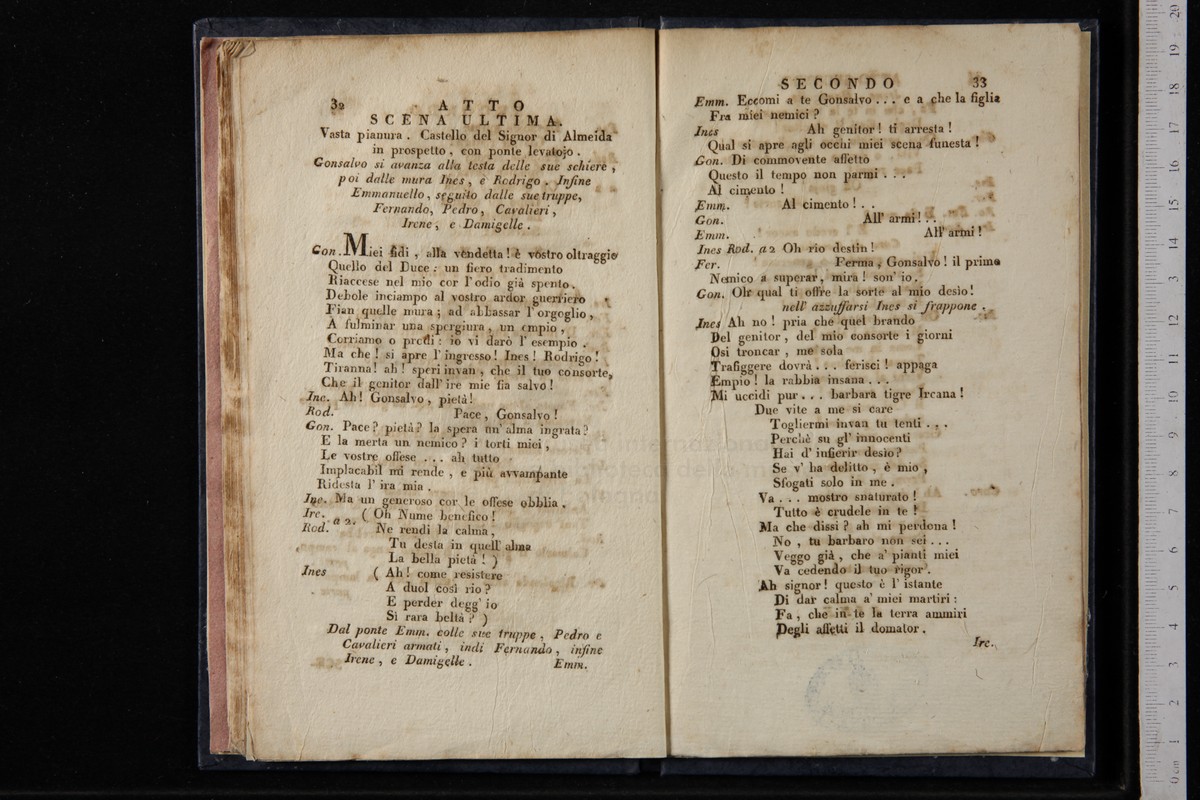 32 ATTO
SCENA ULTIMA.
Vasta pianura . Castello del Signor di Almeida
in prospetto , con ponte levatojo .
Gonsalvo si avanza alla testa delle sue schiere ,
poi dalle mura Ines , e Rodrigo . Infine
Emmanuello , seguito dalle sue truppe,
Fernando, Pedro , Cavalieri ,
Irene , e Damigelle .
Gon. Miei fidi , alla vendetta ! è vostro oltraggio
Quello del Duce : un fiero tradimento
Riaccese nel mio cor l' odio già spento .
Debole inciampo al vostro ardor guerriero
Fian quelle mura ; ad abbassar l' orgoglio ,
A fulminar una spergiura , un empio ,
Corriamo o prodi : io vi darò l' esempio .
Ma che ! si apre l' ingresso ! Ines ! Rodrigo !
Tiranna! ah ! speri invan , che il tuo consorte,
Che il genitor dall' ire mie fia salvo !
Ine. Ah! Gonsalvo , pietà!
Rod. Pace , Gonsalvo !
Gon. Pace ? pietà? la spera un' alma ingrata ?
E la merta un nemico ? i torti miei ,
Le vostre offese . . . ah tutto
Implacabil mi rende , e più avvampante
Ridesta l' ira mia .
Ine. Ma un generoso cor le offese obblia .
Irc. a 2. ( Oh Nume benefico !
Rod. Ne rendi la calma ,
Tu desta in quell' alma
La bella pietà ! )
Ines ( Ah ! come resistere
A duol così rio ?
E perder degg' io
Sì rara beltà ? )
Dal ponte Emm. colle sue truppe , Pedro e
Cavalieri armati , indi Fernando , infine
Irene , e Damigelle .
Emm.
SECONDO 33
Emm. Eccomi a te Gonsalvo . . . e a che la figlia
Fra miei nemici ?
Ines Ah genitor ! ti arresta !
Qual si apre agli occhi miei scena funesta !
Gon. Di commovente affetto
Questo il tempo non parmi . . .
Al cimento !
Emm. Al cimento ! . .
Gon. All' armi ! . .
Emm. All' armi !
Ines Rod. a 2 Oh rio destin !
Fer. Ferma , Gonsalvo ! il primo
Nemico a superar , mira ! son' io .
Gon. Oh qual ti offre la sorte al mio desio !
nell' azzuffarsi Ines si frappone .
Ines Ah no ! pria che quel brando
Del genitor , del mio consorte i giorni
Osi troncar , me sola
Trafiggere dovrà . . . ferisci ! appaga
Empio ! la rabbia insana . . .
Mi uccidi pur . . . barbara tigre Ircana !
Due vite a me sì care
Togliermi invan tu tenti . . .
Perchè su gl' innocenti
Hai d' infierir desio ?
Se v' ha delitto , è mio ,
Sfogati solo in me .
Va . . . mostro snaturato !
Tutto è crudele in te !
Ma che dissi ? ah mi perdona !
No , tu barbaro non sei . . .
Veggo già , che a' pianti miei
Va cedendo il tuo rigor .
Ah signor ! questo è l' istante
Di dar calma a' miei martiri :
Fa , che in te la terra ammiri
Degli affetti il domator .
Irc.